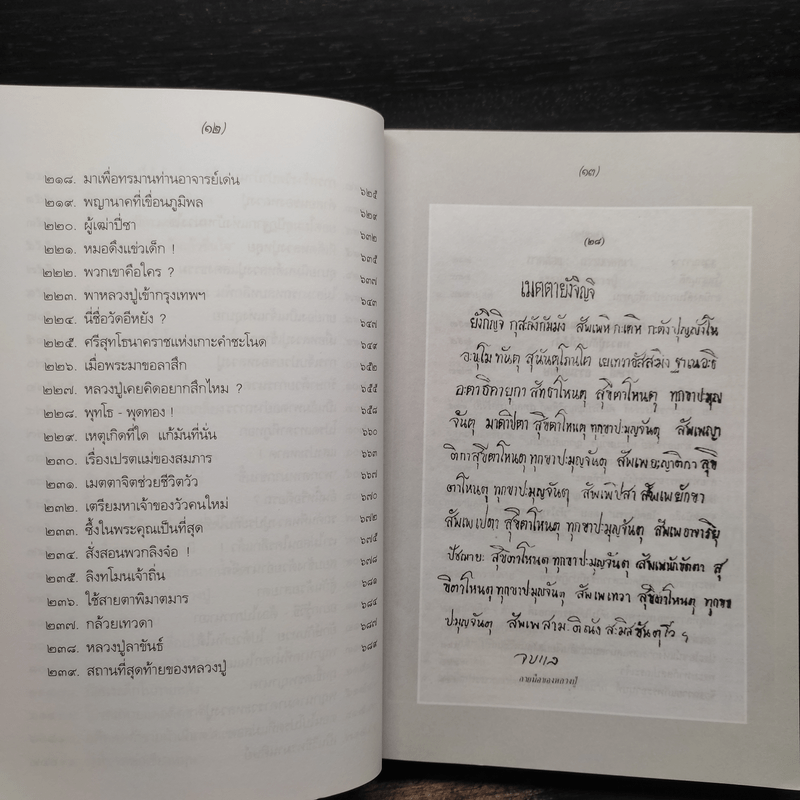 (๑๒)
๒๑๘. มาเพื่อทรมานท่านอาจารย์เด่น ๖๒๕
๒๑๙. พญานาคที่เขื่อนภูมิพล ๖๒๙
๒๒๐. ผู้เฒ่าปี่ซา ๖๓๒
๒๒๑. หมอดึงแข่วเด็ก ! ๖๓๕
๒๒๒. พวกเขาคือใคร ? ๖๓๗
๒๒๓. พาหลวงปู่เข้ากรุงเทพฯ ๖๔๓
๒๒๔. นี่ชื่อวัดอีหยัง ? ๖๔๗
๒๒๕. ศรีสุทโธนาคราชแห่งเกาะคำชะโนด ๖๔๙
๒๒๖. เมื่อพระมาขอลาสึก ๖๕๒
๒๒๗. หลวงปู่เคยคิดอยากสึกไหม ? ๖๕๕
๒๒๘. พุทโธ - พุดทอง ! ๖๕๘
๒๒๙. เหตุเกิดที่ใด แก้มันที่นั่น ๖๖๐
๒๓๐. เรื่องเปรตแม่ของสมภาร ๖๖๓
๒๓๑. เมตตาจิตช่วยชีวิตวัว ๖๖๗
๒๓๒. เตรียมหาเจ้าของวัวคนใหม่ ๖๗๐
๒๓๓. ซึ้งในพระคุณเป็นที่สุด ๖๗๒
๒๓๔. สั่งสอนพวกลิงจ๋อ ! ๖๗๕
๒๓๕. ลิงทโมนเจ้าถิ่น ๖๗๘
๒๓๖. ใช้สายตาพิฆาตมาร ๖๘๑
๒๓๗. กล้วยเทวดา ๖๘๔
๒๓๘. หลวงปู่ลาขันธ์ ๖๘๗
๒๓๙. สถานที่สุดท้ายของหลวงปู่ ๖๘๙
(๑๓)
(๒๘)
เมตตายังจิญจิ
ยังกิญจิ กุสะลังกัมมัง สัพเพหิ กะเตหิ กะตัง ปุญญังโน
อะนุโม ทันตุ สุนันตุโภนโต เย เทวา
สัทธาโหนตุ สุขิตาโหนตุ ทุกขาปะมุญ
จันตุ มาตาปิตา สุขิตาโหนตุ ทุกขาปะมุญจันตุ สัพเพญา
ติกาสุขิตาโหนตุ ทุกขาปะมุญจันตุ สัพเพ ญาติกา สุขิ
ตาโหนตุ ทุกขาปะมุญจันตุ สัพเพปิสา สัพเพยักขา
สัพเพเปตา สุขิตาโหนตุ ทุกขาปะมุญจันตุ สัพเพอาจาริยุ
ปัชฌายะ สุขิตาโหนตุ ทุกขาปะมุญจันตุ สัพเพนักขัตตา สุ
ขิตาโหนตุ ทุกขาปะมุญจันตุ สัพเพเทวา สุขิตาโหนตุ ทุกขา
ปะมุญจันตุ สัพเพสาม
จบแล
ลายมือของหลวงปู่